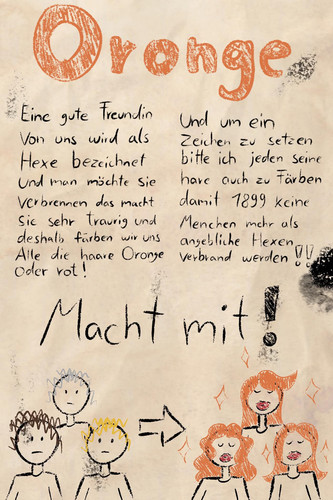 Oronge
Eine gute Freundin
Von uns wird als
Hexe bezeichnet
und man möchte Sie
Verbrennen das macht
Sie sehr traurig und
deshalb färben wir uns
Alle die haare Oronge
Oder rot!
Und um ein
Zeichen zu setzen
bitte ich jeden seine
hare auch zu Färben
damit 1899 keine
Menchen mehr als
angebliche Hexen
verbrand werden!!
Macht mit!